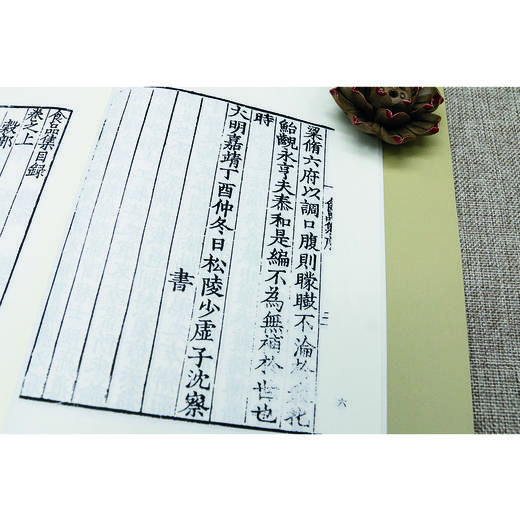 粱脩六府以調口腹則矇瞍不淪於
鮐觀永亨夫泰和是編不為無補於世也
時
大明嘉靖丁酉仲冬日松陵少虛子沈察
書
食品集序
二
六
食品集目錄
卷之上
穀部